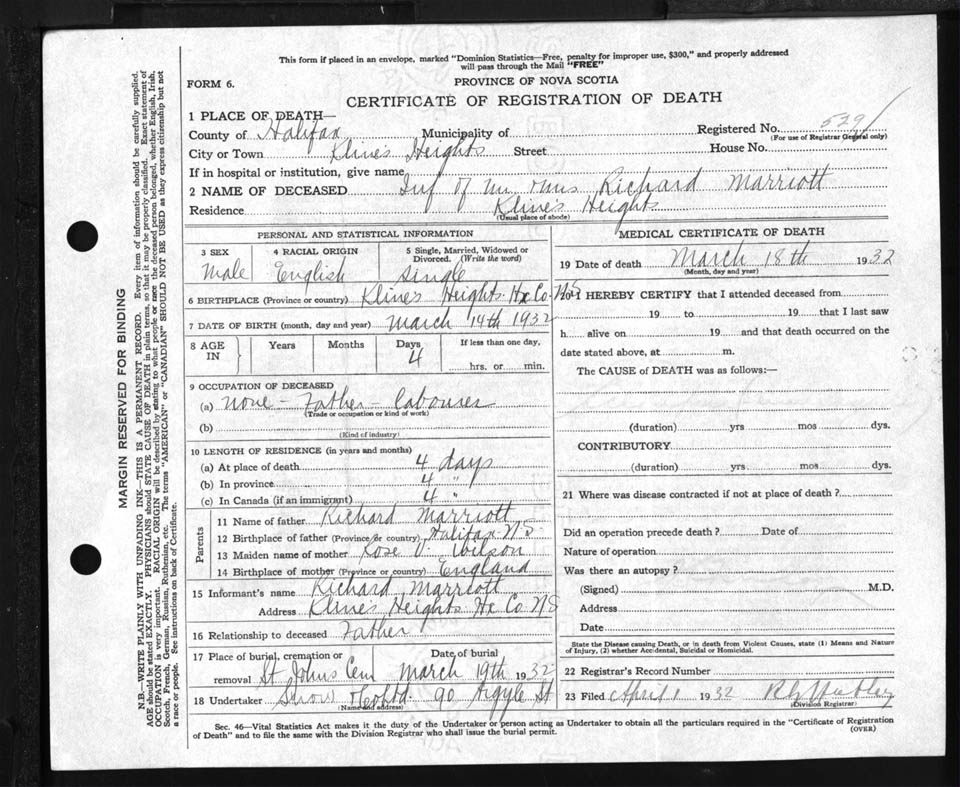 This form if placed in an envelope, marked "Dominion Statistics—Free, penalty for improper use, $300," and properly addressed
will pass through the Mail "FREE"
FORM 6.
PROVINCE OF NOVA SCOTIA
CERTIFICATE OF REGISTRATION OF DEATH
1 PLACE OF DEATH—
County of Halifax Municipality of Registered No. 529
(For use of Registrar General only)
City or Town Kline's Heights Street House No.
If in hospital or institution, give name
2 NAME OF DECEASED Inf of Mr Richard Marriott
Residence Kline's Heights
(Usual place of abode)
PERSONAL AND STATISTICAL INFORMATION
3 SEX 4 RACIAL ORIGIN 5 Single, Married, Widowed or
Divorced. (Write the word)
Male English Single
6 BIRTHPLACE (Province or country) Kline's Heights Hx Co. NS
7 DATE OF BIRTH (month, day and year) March 14th 1932
8 AGE IN Years Months Days If less than one day,
4 hrs. or min.
9 OCCUPATION OF DECEASED
(a) None - Father - Labourer
(Trade or occupation or kind of work)
(b)
(Kind of industry)
10 LENGTH OF RESIDENCE (in years and months)
(a) At place of death 4 days
(b) In province 4 "
(c) In Canada (if an immigrant) 4 "
Parents
11 Name of father Richard Marriott
12 Birthplace of father (Province or country) Halifax N.S
13 Maiden name of mother Rose Wilson
14 Birthplace of mother (Province or country) England
15 Informant's name Richard Marriott
Address Kline's Heights Hx Co NS
16 Relationship to deceased Father
17 Place of burial, cremation or removal Date of burial
St Johns Cem March 19th 1932
18 Undertaker Snow 90 Argyle St
(Name and address)
MEDICAL CERTIFICATE OF DEATH
19 Date of death March 18th 1932
(Month, day and year)
20 I HEREBY CERTIFY that I attended deceased from
19 to 19 that I last saw
h alive on 19 and that death occurred on the
date stated above, at m.
The CAUSE of DEATH was as follows:—
(duration) yrs mos dys.
CONTRIBUTORY
(duration) yrs mos dys.
21 Where was disease contracted if not at place of death?
Did an operation precede death? Date of
Nature of operation
Was there an autopsy?
(Signed) M.D.
Address
Date
State the Disease causing Death, or in death from Violent Causes, state (1) Means and Nature
of Injury, (2) whether Accidental, Suicidal or Homicidal.
22 Registrar's Record Number
23 Filed April 1 1932
(Division Registrar)
Sec. 46—Vital Statistics Act makes it the duty of the Undertaker or person acting as Undertaker to obtain all the particulars required in the "Certificate of Registration
of Death" and to file the same with the Division Registrar who shall issue the burial permit.
(OVER)
MARGIN RESERVED FOR BINDING
N.B.—WRITE PLAINLY WITH UNFADING INK—THIS IS A PERMANENT RECORD. Every item of information should be carefully supplied.
AGE should be stated EXACTLY. PHYSICIANS should STATE CAUSE OF DEATH in plain terms, so that it may be properly classified. Exact statement of
OCCUPATION is very important. RACIAL ORIGIN will be described by stating to what people or race the deceased person belonged, whether English, Irish,
Scotch, French, German, Russian, Ruthenian, etc. The terms "AMERICAN" or "CANADIAN" SHOULD NOT BE USED as they express citizenship but not
a race or people. See instructions on back of Certificate.